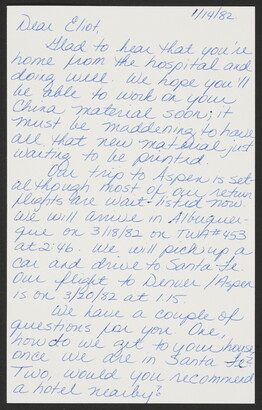 1/14/82
Dear Eliot,
Glad to hear that you're
home from the hospital and
doing well. We hope you'll
be able to work on your
China material soon; it
must be maddening to have
all that new material just
waiting to be printed.
Our trip to Aspen is set-
although most of our return
flights are wait-listed now.
We will arrive in Albuquer-
que on 3/18/82 on TWA #453
at 2:46. We will pick up a
car and drive to Santa Fe.
Our flight to Denver/Aspen
is on 3/20/82 at 1:15.
We have a couple of
questions for you. One,
how do we get to your house
once we are in Santa Fe?
Two, would you recommend
a hotel nearby?